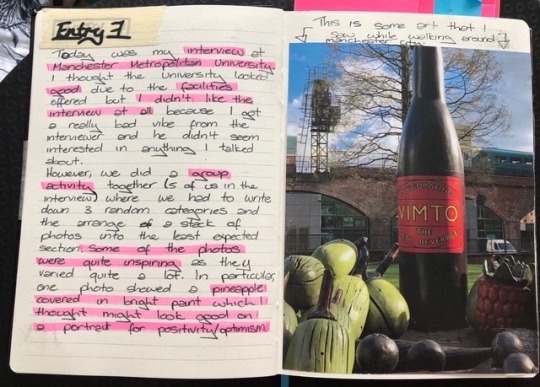 Entry 3
Today was my interview at
Manchester Metropolitan University.
I thought the University looked
good due to the facilities
offered but I didn't like the
interview at all because I got
a really bad vibe from the
interviewer and he didn't seem
interested in anything I talked
about.
However, we did a group
activity together (5 of us in the
interview) where we had to write
down 3 random categories and
the arrange a stack of
photos into the least expected
section. Some of the photos
were quite inspiring as they
varied quite a lot. In particular,
one photo showed a pineapple
covered in bright paint which I
thought might look good on
a portrait for positivity/optimism
This is some art that I
saw while walking around
manchester city.
VIMTO
THE
BEVERAGE